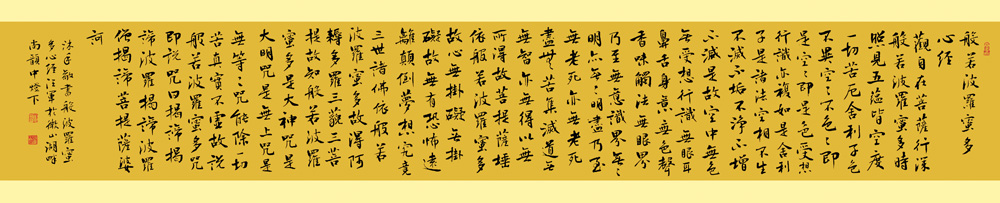 般若波羅蜜多
心經
觀自在菩薩行深
般若波羅蜜多時
照見五蘊皆空度
一切苦厄舍利子色
不異空々不色々即
是空々即是色受想
行識亦複如是舍利
子是諸法空相不生
不滅不垢不淨不增
不減是故空中無色
無受想行識無眼耳
鼻舌身意無色聲
香味觸法無眼界
乃至無意識界無々
明亦無々明盡乃至
無老死亦無老死
盡無苦集滅道無
無智亦無得以無
所得故菩提薩埵
依般若波羅蜜多
故心無掛礙無掛
礙故無有恐怖遠
離顛倒夢想究竟
三世諸佛依般若
波羅蜜多故得阿
耨多羅三藐三菩
提故知般若波羅
蜜多是大神咒是
大明咒是無上咒是
無等々咒能除一切
苦真實不虛故說
般若波羅蜜多咒
即說咒曰揭諦揭
諦波羅揭諦波羅
僧揭諦菩提薩婆
訶
沐手敬書般若波羅蜜
多心經軍於微湖畔
尚韻中燈下